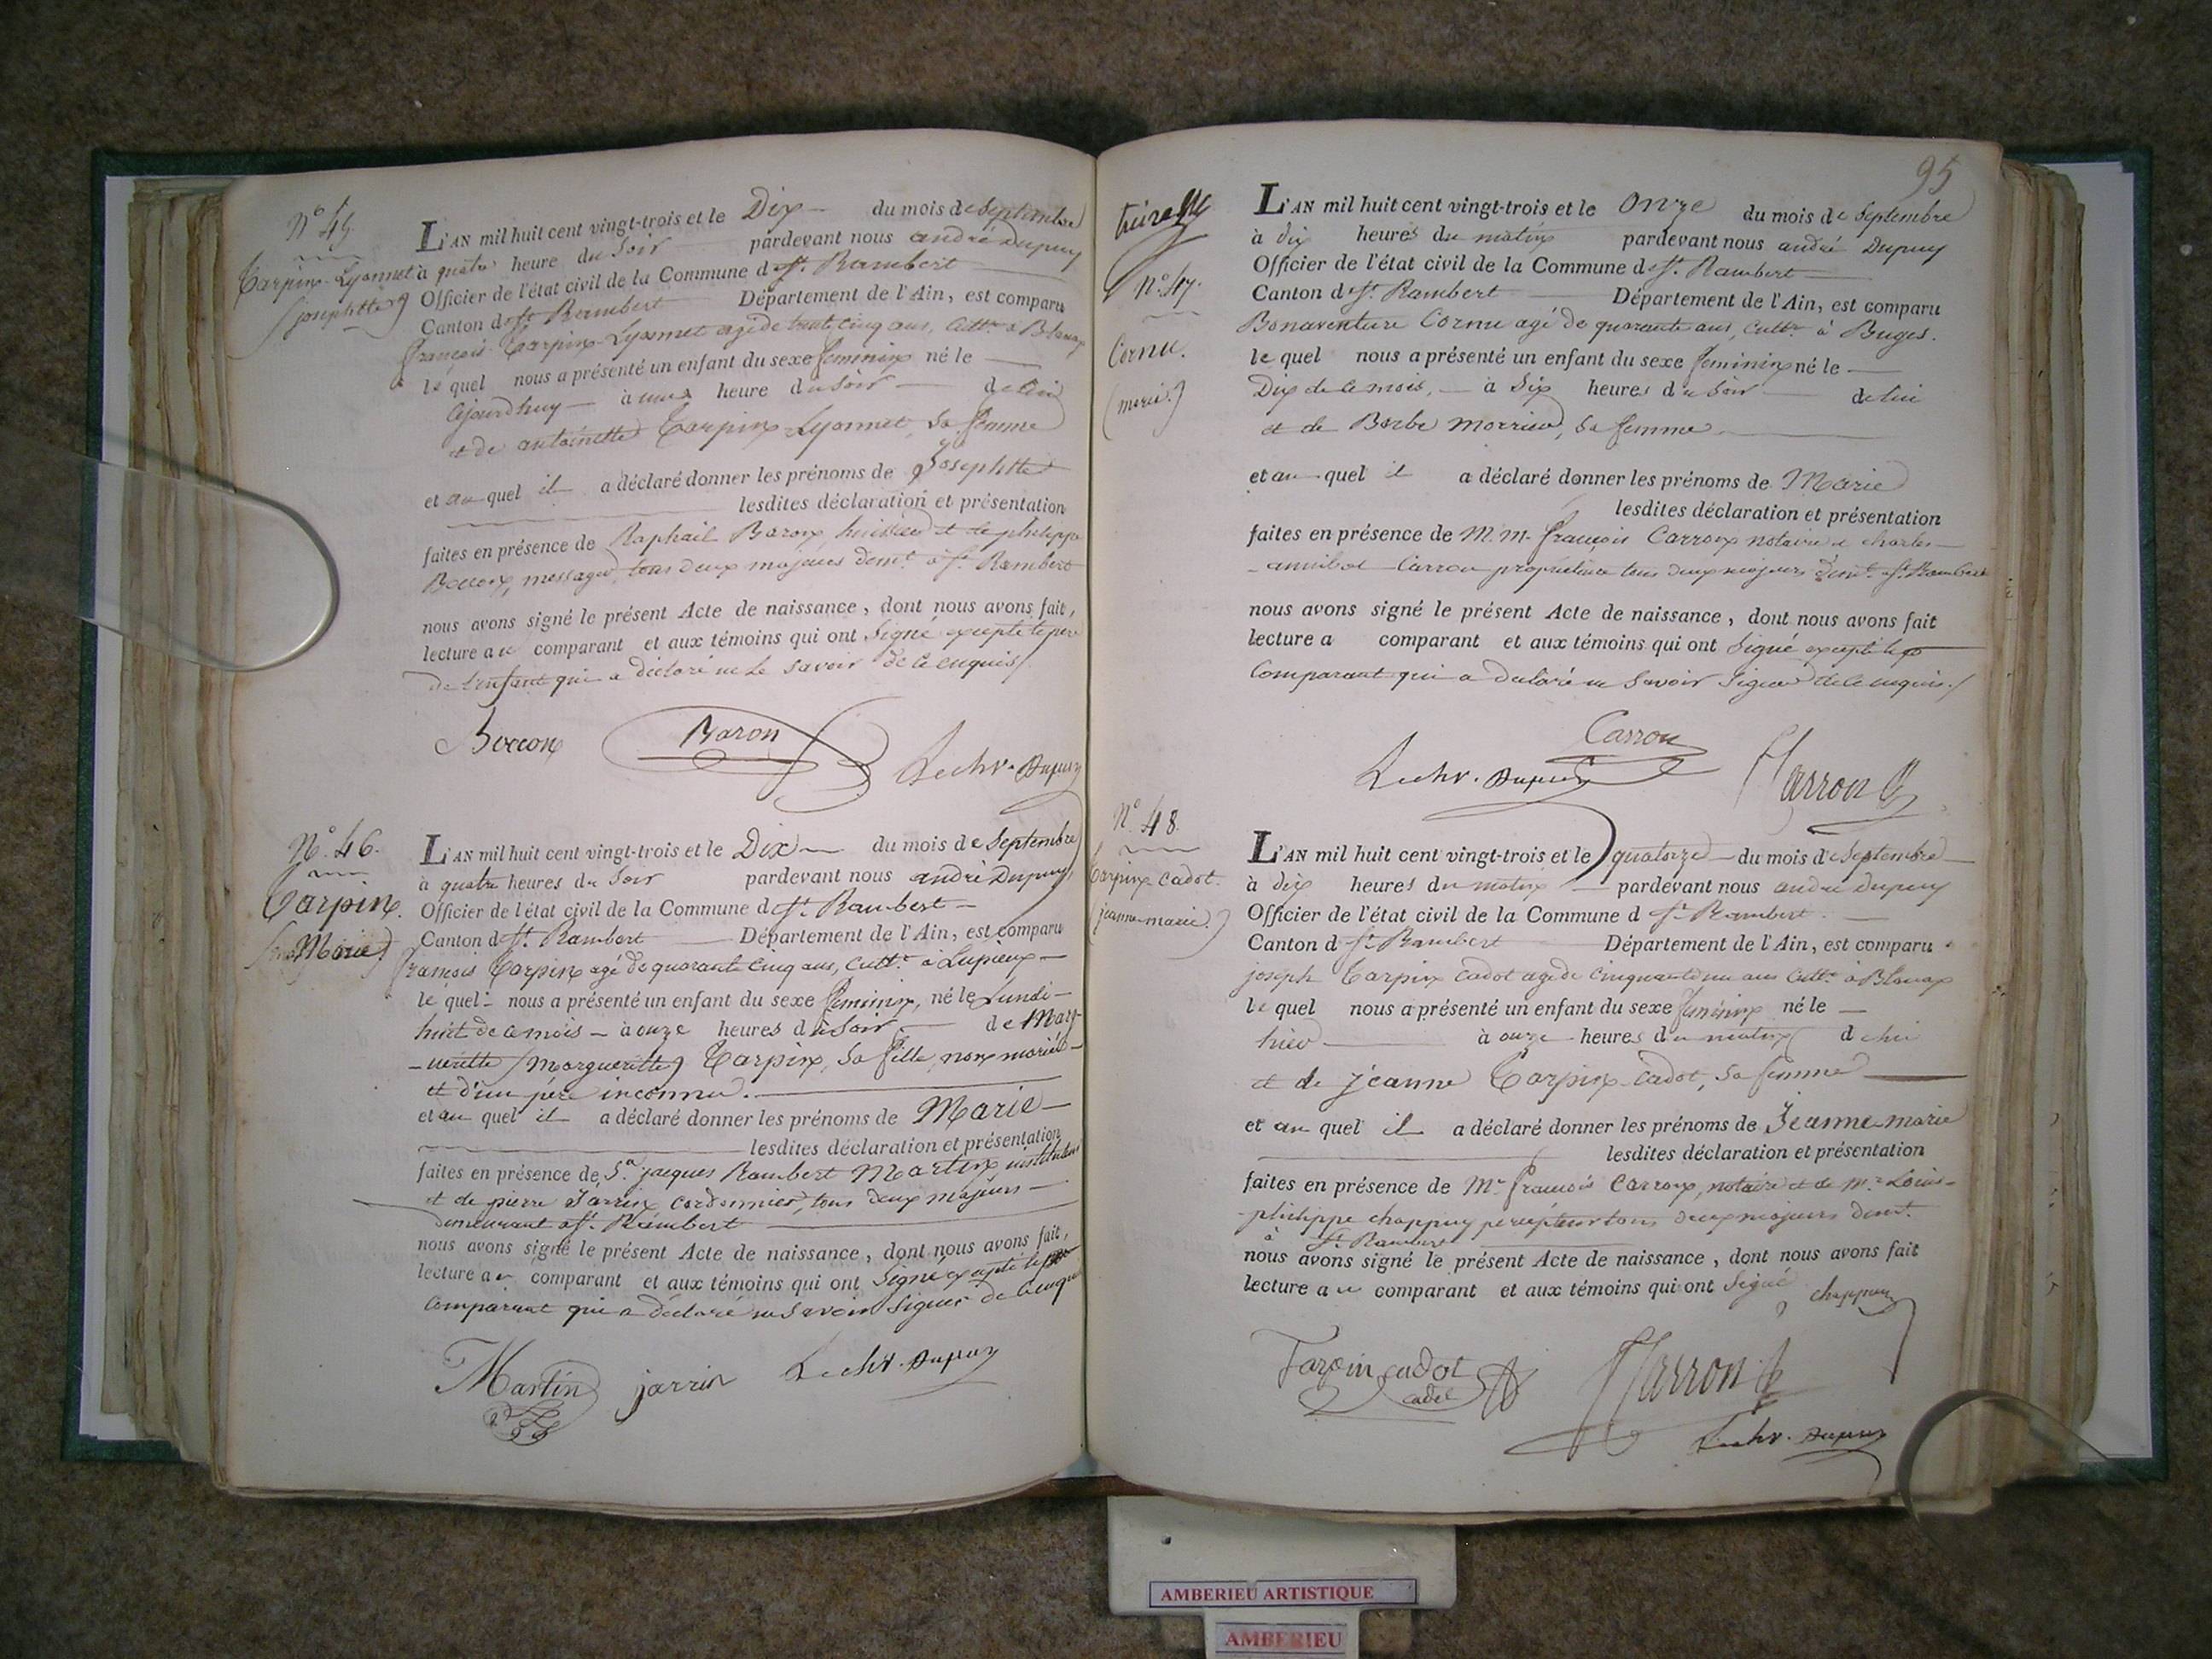 N° 45.
Tarpin-Lyonnet
(josephtte)
L'AN mil huit cent vingt-trois et le Dix du mois de Septembre
à quatre heure du Soir pardevant nous andré Dupuy
Officier de l'état civil de la Commune de St. Rambert
Canton de St Rambert Département de l'Ain, est comparu
françois Tarpin-Lyonnet agé de trente cinq ans, cultr. à Blanaz
le quel nous a présenté un enfant du sexe feminin né le
ajourdhuy à une heure du Soir de lui
et de antoinette Tarpin Lyonnet, Sa femme
et au quel il a déclaré donner les prénoms de Josephtte
lesdites déclaration et présentation
faites en présence de Raphaël Baron, huissier et de philippe
Boccon, messager, tous deux majeurs demt. à St. Rambert
nous avons signé le présent Acte de naissance, dont nous avons fait,
lecture au comparant et aux témoins qui ont Signé excepté le pere
de l'enfant qui a déclaré ne le savoir de ce enquis
Boccon Baron Le chv. Dupuy
N°. 46.
Tarpin.
Marie)
L'AN mil huit cent vingt-trois et le Dix du mois de Septembre
à quatre heures du Soir pardevant nous andré Dupuy
Officier de l'état civil de la Commune de St. Rambert
Canton de St. Rambert Département de l'Ain, est comparu
françois Tarpin agé de quarante cinq ans, cultr. à Lupieux
le quel nous a présenté un enfant du sexe feminin, né le Lundi
huit de ce mois à onze heures du Soir de Marg
-ueritte (Margueritte) Tarpin, Sa fille, non mariée
et d'un père inconnu.
et au quel il a déclaré donner les prénoms de Marie
lesdites déclaration et présentation
faites en présence de Sr. jacques Rambert Martin instituteur
et de pierre Jarrin cordonnier, tous deux majeurs
demeurant à St. Rambert
nous avons signé le présent Acte de naissance, dont nous avons fait,
lecture au comparant et aux témoins qui ont Signé excepté le
comparant qui a déclaré ne savoir signer de ce enquis
Martin jarrin Le chv. Dupuy
95
N°. 47.
Cornu.
(marie.)
L'AN mil huit cent vingt-trois et le Onze du mois de Septembre
à dix heures du matin pardevant nous andré Dupuy
Officier de l'état civil de la Commune de St. Rambert
Canton de St. Rambert Département de l'Ain, est comparu
Bonaventure Cornu agé de quarante ans, cultr. à Buges.
le quel nous a présenté un enfant du sexe feminin né le
Dix de ce mois, à Six heures du Soir de lui
et de Barbe Morrier, Sa femme
et au quel il a déclaré donner les prénoms de Marie
lesdites déclaration et présentation
faites en présence de M.M. françois Carron notaire et charles
-annibal Carron propriétaire tous deux majeurs demt. à St. Rambert
nous avons signé le présent Acte de naissance, dont nous avons fait
lecture a comparant et aux témoins qui ont Signé excepté le
Comparant qui a déclaré ne Savoir Signer de ce enquis./
Carron
Le chv. Dupuy Carron
N°. 48.
Tarpin Cadot.
(jeanne-marie.)
L'AN mil huit cent vingt-trois et le quatorze du mois de Septembre
à dix heures du matin pardevant nous andré Dupuy
Officier de l'état civil de la Commune d St. Rambert
Canton d St Rambert Département de l'Ain, est comparu
joseph Tarpin Cadot agé de cinquante un ans cultr. à Blanaz
le quel nous a présenté un enfant du sexe féminin né le
hier à onze heures du matin de lui
et de jeanne Tarpin-Cadot, Sa femme
et au quel il a déclaré donner les prénoms de Jeanne-marie
lesdites déclaration et présentation
faites en présence de Mr françois Carron, notaire et de Mr. Louis-
philippe chappuy percepteur tous deux majeurs demt.
à St. Rambert
nous avons signé le présent Acte de naissance, dont nous avons fait
lecture au comparant et aux témoins qui ont Signé
chappuy
Tarpin cadot
cadet Carron
Le chv. Dupuy
AMBERIEU ARTISTIQUE
AMBERIEU